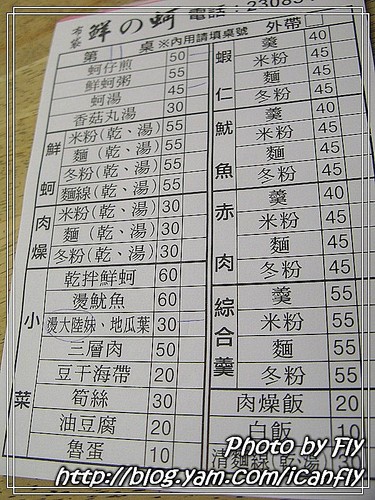 鮮の蚵 電話：
第11桌 ※內用請填桌號 外帶
蚵仔煎 50
鮮蚵粥 55
蚵湯 45
香菇丸湯 30
鮮蚵
米粉(乾、湯) 55
麵(乾、湯) 55
冬粉(乾、湯) 55
麵線(乾、湯) 55
肉燥
米粉(乾、湯) 30
麵(乾、湯) 30
冬粉(乾、湯) 30
小菜
乾拌鮮蚵 60
燙魷魚 60
燙大陸妹、地瓜葉 30
三層肉 50
豆干海帶 20
筍絲 30
油豆腐 20
魯蛋 10
蝦仁
羹 40
米粉 45
麵 45
冬粉 45
魷魚
羹 40
米粉 45
麵 45
冬粉 45
赤肉
羹 40
米粉 45
麵 45
冬粉 45
綜合羹
羹 55
米粉 55
麵 55
冬粉 55
肉燥飯 20
白飯 10
清麵線(乾、湯)
Photo by Fly
http://blog.yam.com/icanfly